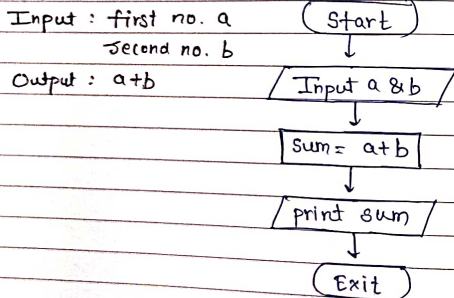 Input : first no. a
second no. b
Output : a+b
Start
Input a & b
Sum = a+b
print sum
Exit